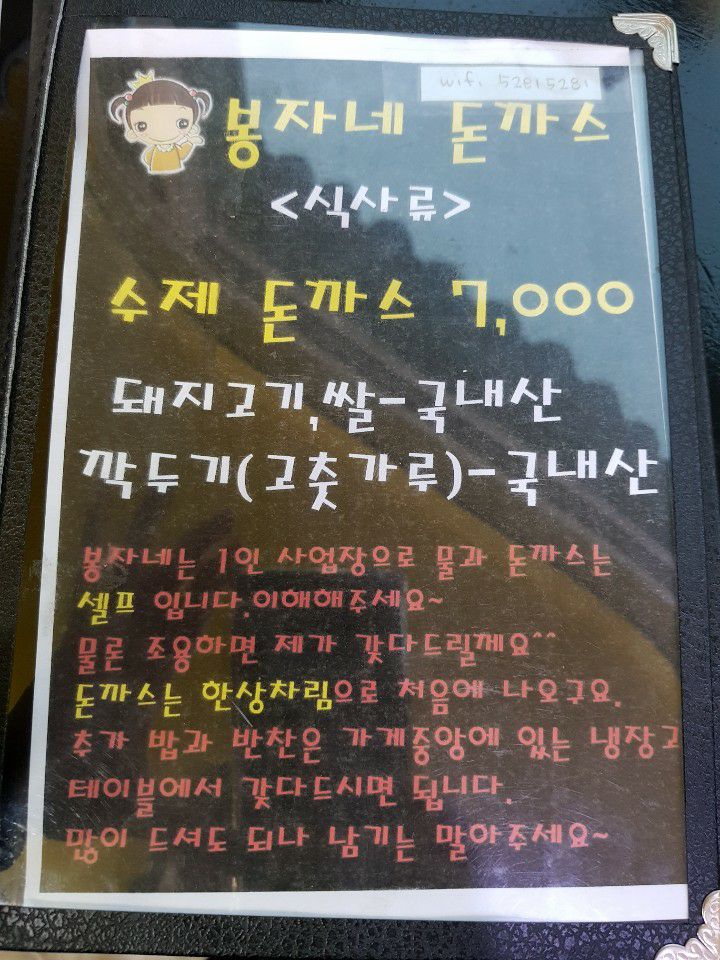 wifi 52815281
봉자네 돈까스
<식사류>
수제 돈까스 7,000
돼지고기,쌀-국내산
깍두기(고춧가루)-국내산
봉자네는 1인 사업장으로 물과 돈까스는
셀프 입니다.이해해주세요~
물론 조용하면 제가 갖다드릴께요^^
돈까스는 한상차림으로 처음에 나오구요.
추가 밥과 반찬은 가게중앙에 있는 냉장고
테이블에서 갖다드시면 됩니다.
많이 드셔도 되나 남기는 말아주세요~